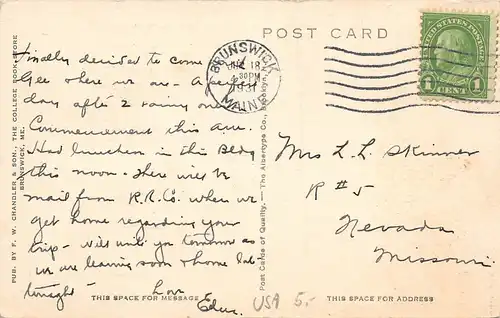 POST CARD
Finally decided to come.
Gee where we are - A perfect
day after 2 rainy ones
Commencement this am.
Had luncheon in this Bldg
this noon - There will be
mail from R.R.Co. when we
get home regarding your
trip - will write you tomorrow as
we are leaving soon & home late
tonight - Love
THIS SPACE FOR MESSAGE
PUB. BY F. W. CHANDLER & SON, THE COLLEGE BOOK STORE
BRUNSWICK, ME.
Post Cards of Quality. — The Albertype Co., Brooklyn
BRUNSWICK
18
30PM
1931
MAINE
UNITED STATES POSTAGE
1 CENT 1
Mrs L. L. Skinner
R #5
Nevada
Missouri.
THIS SPACE FOR ADDRESS
USA 5.-